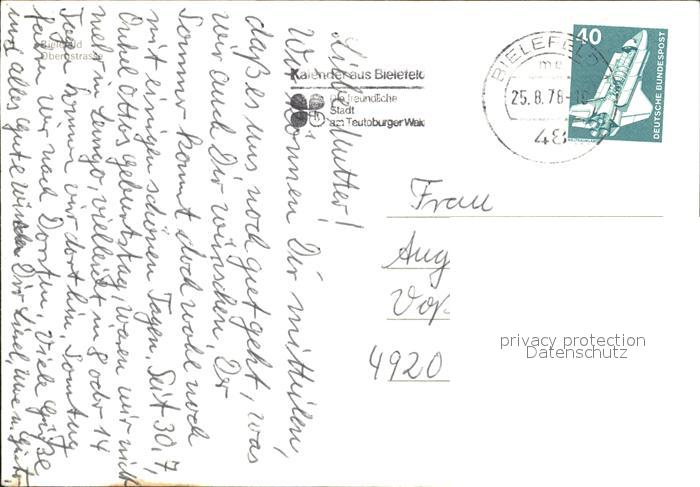 Bielefeld
Obernstrasse
Liebe Mutter!
Wir können Dir mitteilen,
daß es uns noch gut geht, was
wir auch Dir wünschen, Der
Sommer kommt doch wohl noch
mit einigen schönen Tagen, Seit 30,7,
Onkel Ottos Geburtstag, waren wir nicht
mehr in Lemgo, vielleicht in 8 oder 14
Tagen kommen wir dorthin, Sonntag
fahren wir nach Dorsten, Viele Grüße
und alles gute wünschen Dir Liesel, Uwe u. Günter
Kalender aus Bielefeld
Die freundliche
Stadt
am Teutoburger Wald
BIELEFELD
me
25.8.78-18
48
40
DEUTSCHE BUNDESPOST
Frau
Aug
Voß
4920
privacy protection
Datenschutz